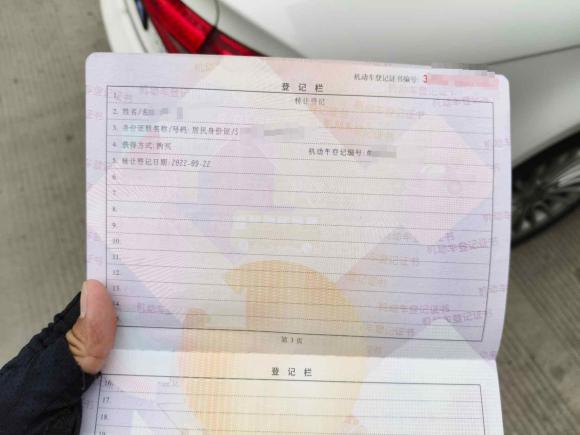 机动车登记证书编号: 3
登记栏
1. 转让登记
2. 姓名/名称:
3. 身份证明名称/号码: 居民身份证/5
4. 获得方式: 购买 机动车登记编号:
5. 转让登记日期: 2022-09-22
6.
7.
8.
9.
10.
11.
12.
13.
14.
第 3 页
登记栏
16.
17.
18.
机动车登记证书